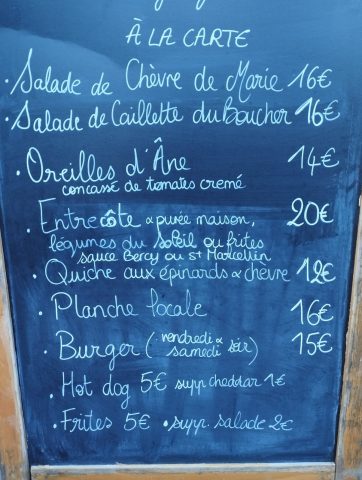 À LA CARTE
• Salade de Chèvre de Marie 16€
• Salade de Caillette du Boucher 16€
• Oreilles d'Âne 14€
concassé de tomates cremé
• Entrecôte & purée maison, 20€
légumes du soleil ou frites
sauce Bercy ou St Marcellin
• Quiche aux épinards & chèvre 12€
• Planche locale 16€
• Burger (vendredi & samedi soir) 15€
• Hot dog 5€ supp cheddar 1€
• Frites 5€ • supp. salade 2€